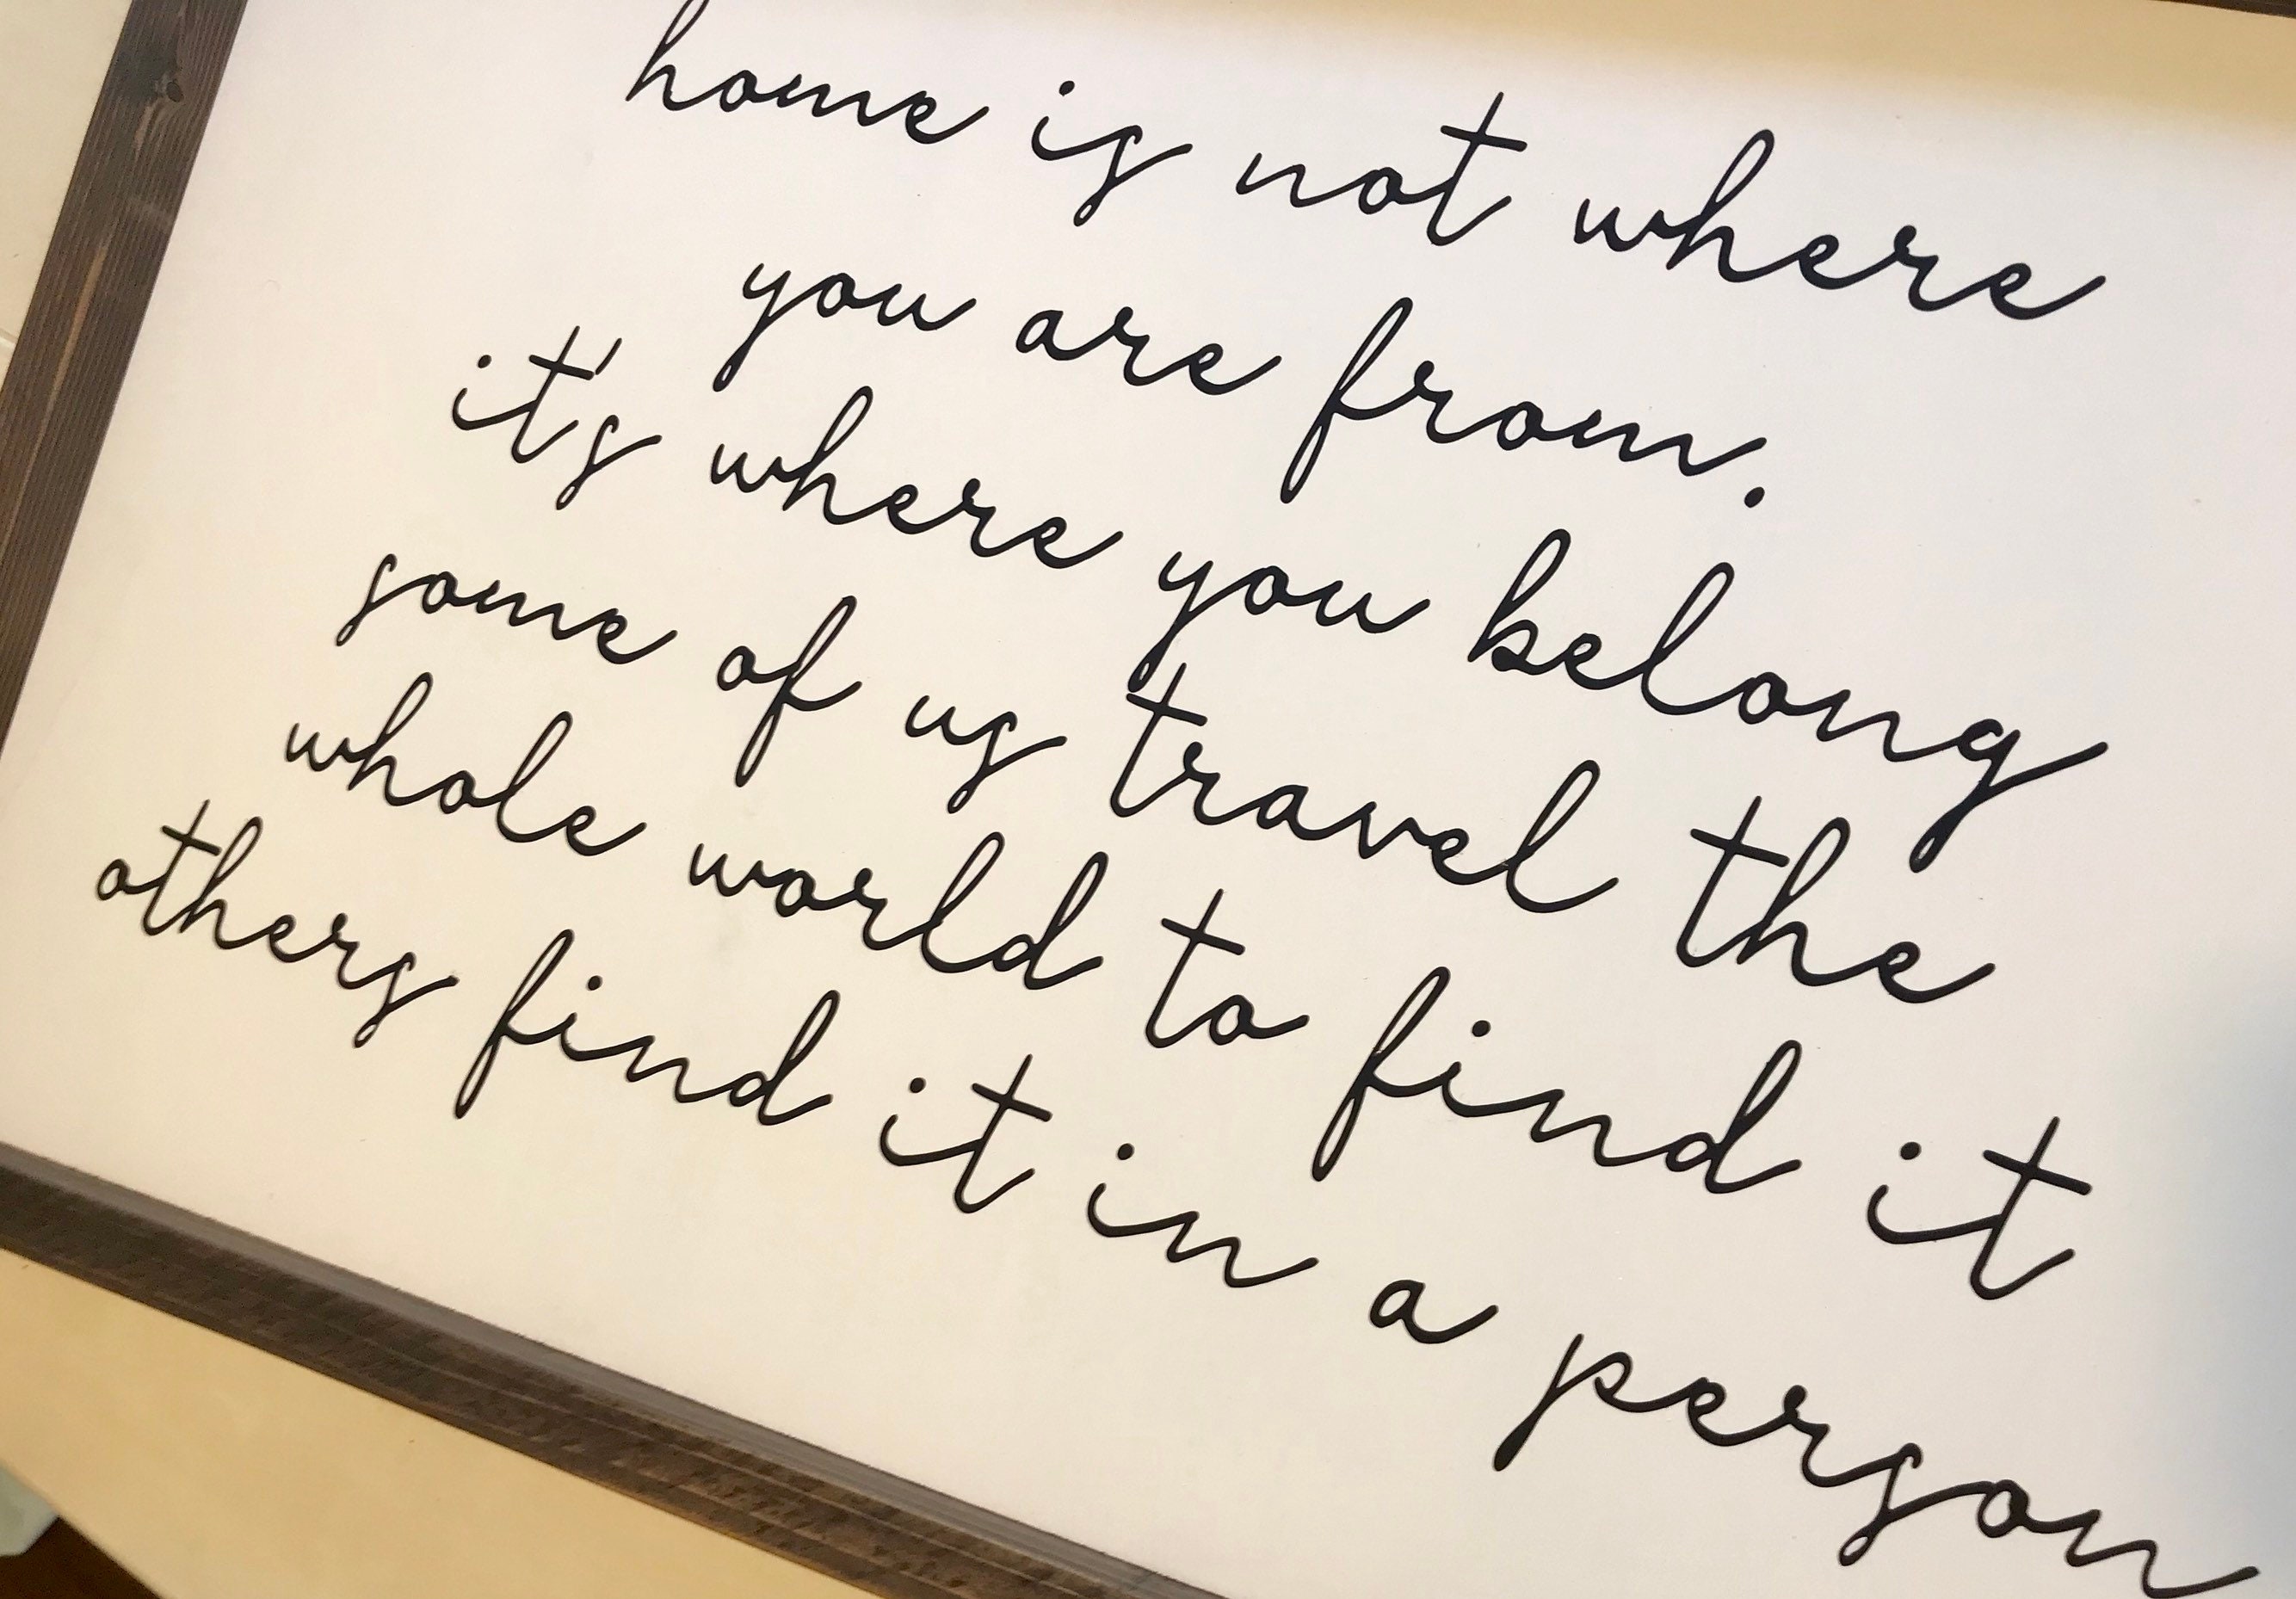 home is not where
you are from.
it's where you belong
some of us travel the
whole world to find it
others find it in a person